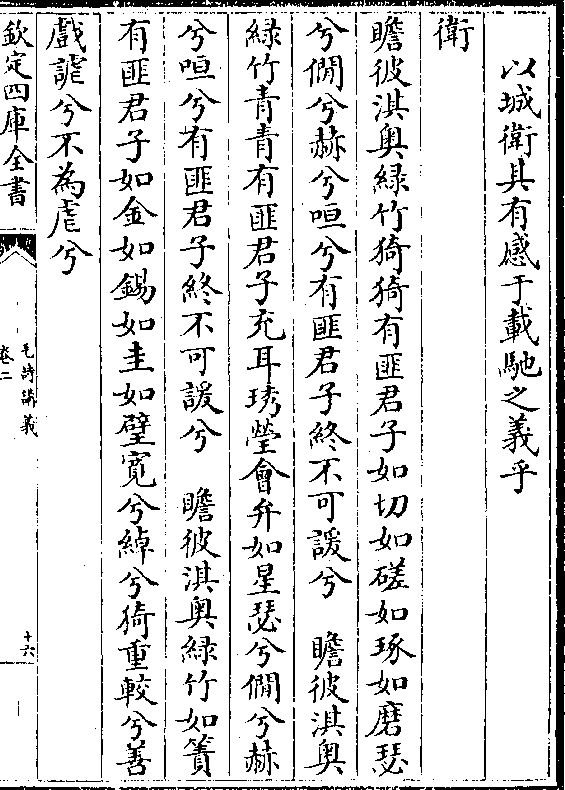 以城衛具有感于載馳之義乎
衛
瞻彼淇奥綠竹猗猗有匪君子如切如磋如琢如磨瑟
兮僩兮赫兮咺兮有匪君子終不可諼兮　瞻彼淇奥
綠竹青青有匪君子充耳琇瑩會弁如星瑟兮僩兮赫
兮咺兮有匪君子終不可諼兮　瞻彼淇奥綠竹如簀
有匪君子如金如錫如圭如璧寬兮綽兮猗重較兮善
戲謔兮不為虐兮
欽定四庫全書
毛詩講義
卷二
十六